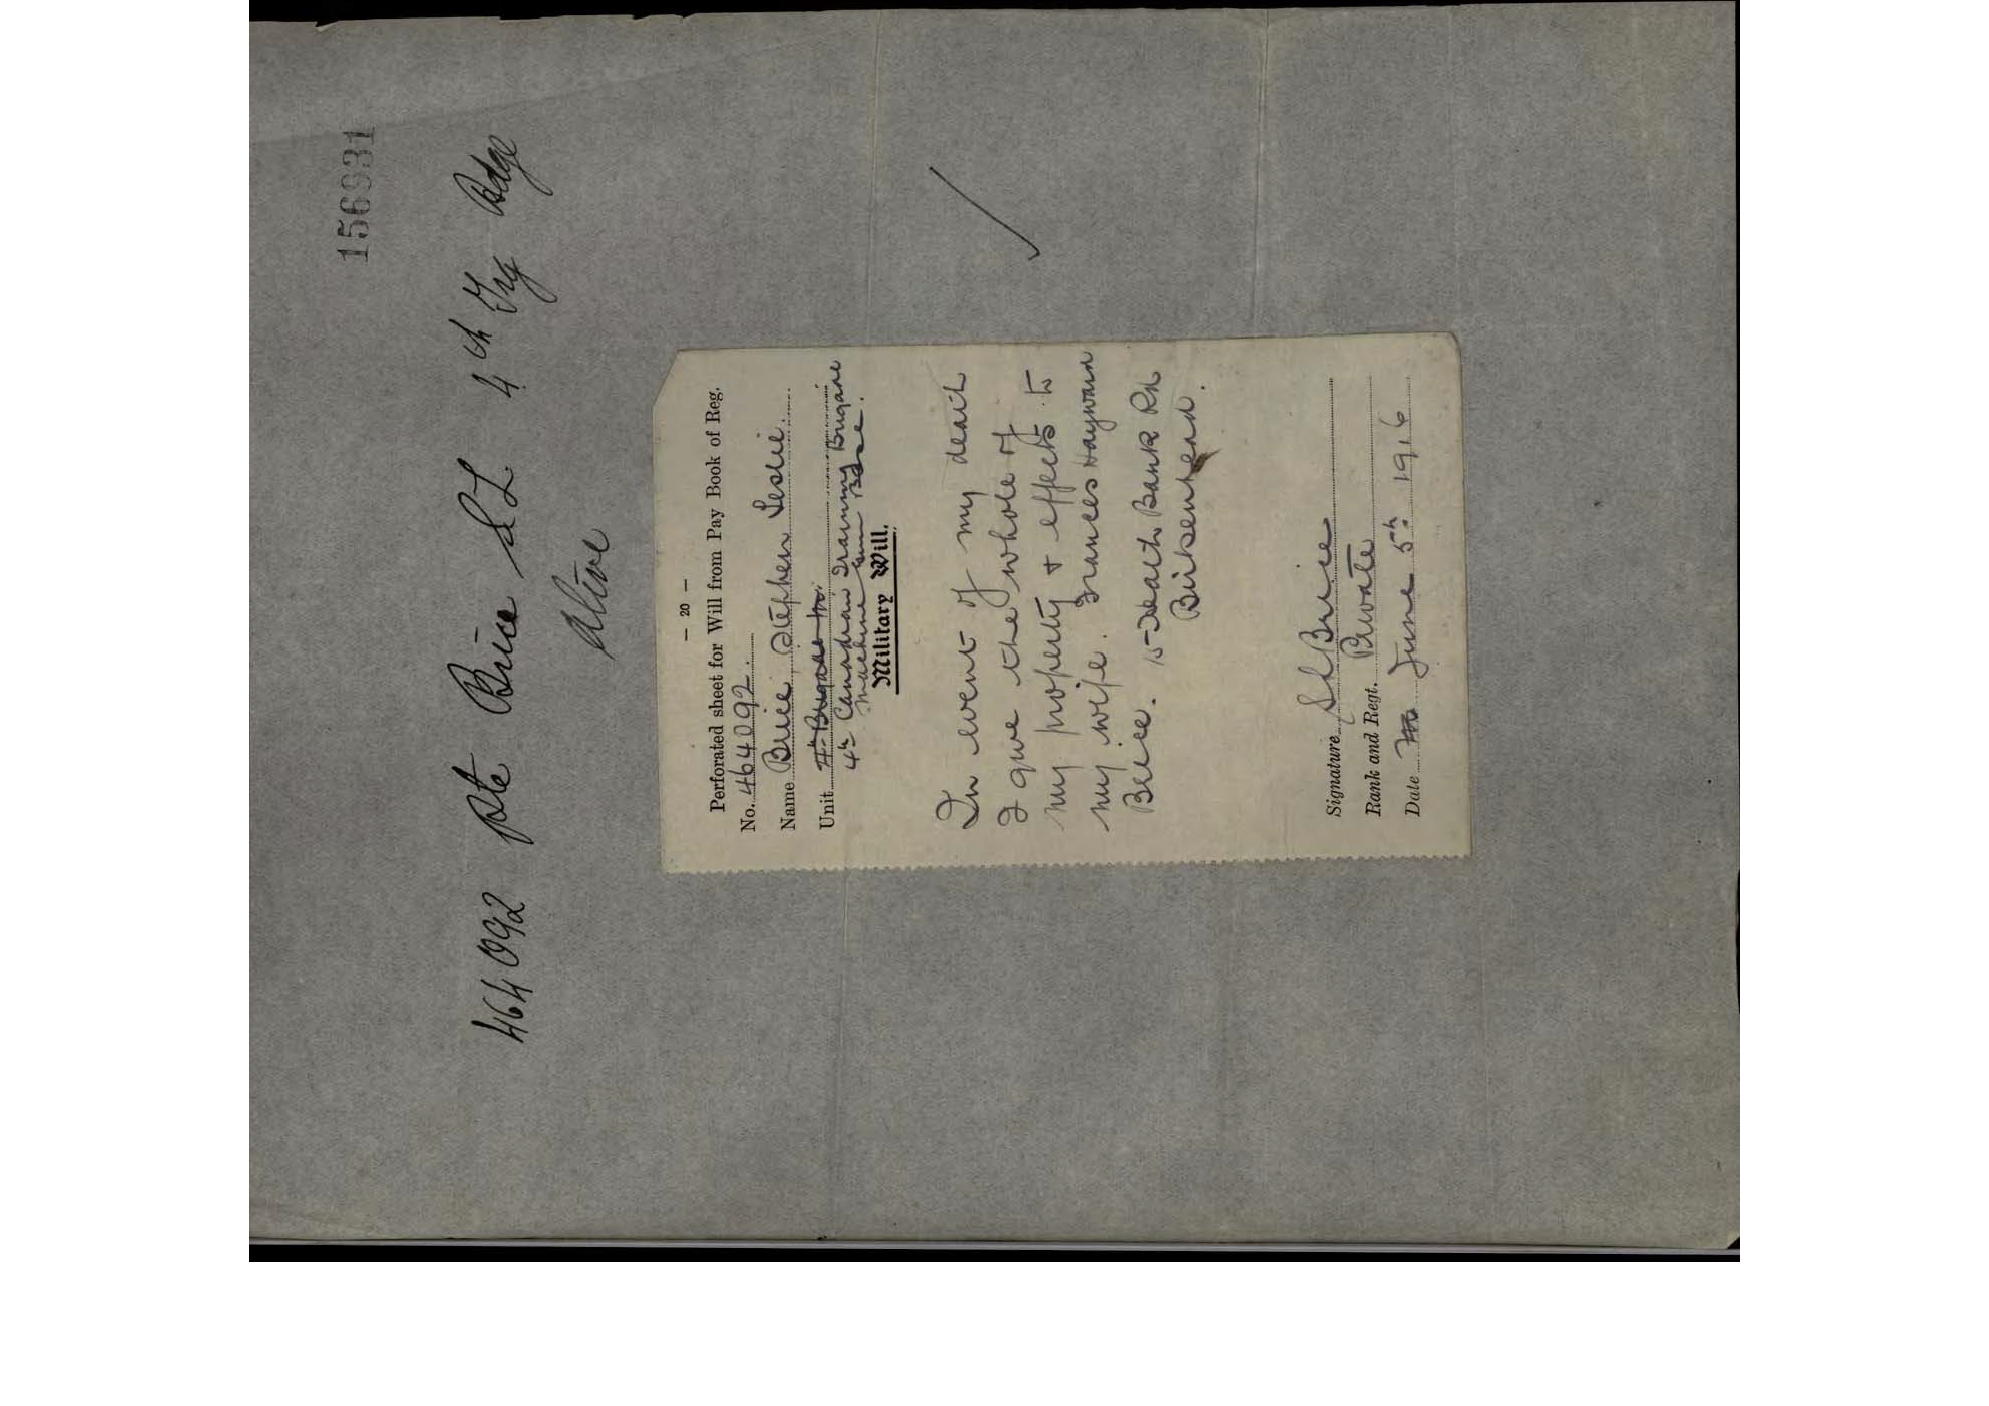 156931
464092 Pte Brice S L 4th Trg Bdge
Alive
– 20 –
Perforated sheet for Will from Pay Book of Reg.
No. 464092.
Name Brice, Stephen Leslie.
Unit 4th Brigade
4th Canadian Training Brigade
Machine Gun Base.
Military Will.
In event of my death
I give the whole of
my property + effects to
my wife. Frances Hayward
Brice. 15 Heath Bank Rd
Birkenhead.
Signature S L Brice
Rank and Regt. Private
Date June 5th 1916